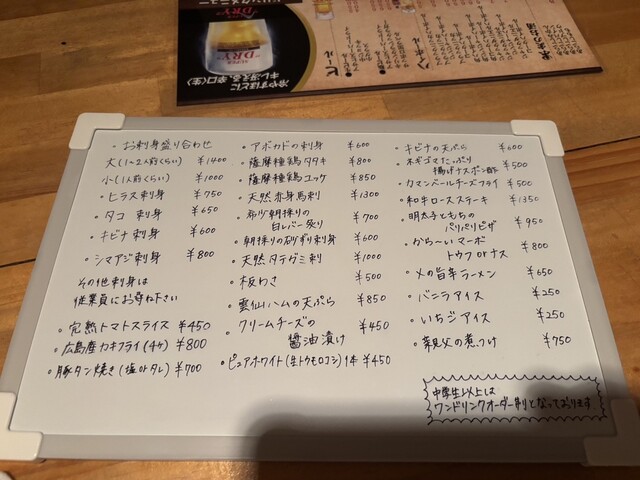 ・お刺身盛り合わせ
大(1〜2人前くらい) ¥1400
小(1人前くらい) ¥1000
・ヒラス刺身 ¥750
・タコ 刺身 ¥650
・キビナ刺身 ¥600
・シマアジ刺身 ¥800
その他刺身は
従業員にお尋ね下さい
・完熟トマトスライス ¥450
・広島産カキフライ(4ケ) ¥800
・豚タン焼き(塩orタレ) ¥700
・アボカドの刺身 ¥600
・薩摩種鶏タタキ ¥800
・薩摩種鶏ユッケ ¥850
・天然赤身馬刺 ¥1300
・朝採りの
白レバー炙り ¥700
・朝採りの砂ずり刺身 ¥600
・天然タテガミ刺 ¥1000
・板わさ ¥500
・雲仙ハムの天ぷら ¥850
・クリームチーズの
醤油漬け ¥450
・ピュアホワイト(生トウモロコシ)1本 ¥450
・キビナの天ぷら ¥600
・ネギゴマたっぷり
揚げナスポン酢 ¥500
・カマンベールチーズフライ ¥500
・和牛ロースステーキ ¥1350
・明太子ともちの
パリパリピザ ¥950
・からーいマーボ
トウフorナス ¥800
・火の旨辛ラーメン ¥650
・バニラアイス ¥250
・いちジアイス ¥250
・親父の煮つけ ¥750
中学生以上は
ワンドリンクオーダー制となっております
冷やすほどに
キレ冴える、辛口〈生〉
DRY
ビール